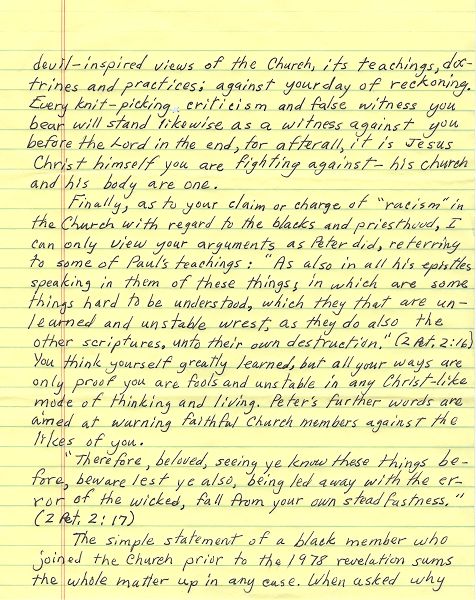 devil-inspired views of the Church, its teachings, doc-
trines and practices; against your day of reckoning.
Every knit-picking criticism and false witness you
bear will stand likewise as a witness against you
before the Lord in the end, for afterall, it is Jesus
Christ himself you are fighting against - his church
and his body are one.
Finally, as to your claim or charge of "racism" in
the Church with regard to the blacks and priesthood, I
can only view your arguments as Peter did, referring
to some of Paul's teachings: "As also in all his epistles
speaking in them of these things; in which are some
things hard to be understood, which they that are un-
learned and unstable wrest, as they do also the
other scriptures, unto their own destruction." (2 Pet. 2:16)
You think yourself greatly learned, but all your ways are
only proof you are fools and unstable in any Christ-like
mode of thinking and living. Peter's further words are
aimed at warning faithful Church members against the
likes of you.
"Therefore, beloved, seeing ye know these things be-
fore, beware lest ye also, being led away with the er-
ror of the wicked, fall from your own steadfastness."
(2 Pet. 2:17)
The simple statement of a black member who
joined the Church prior to the 1978 revelation sums
the whole matter up in any case. When asked why